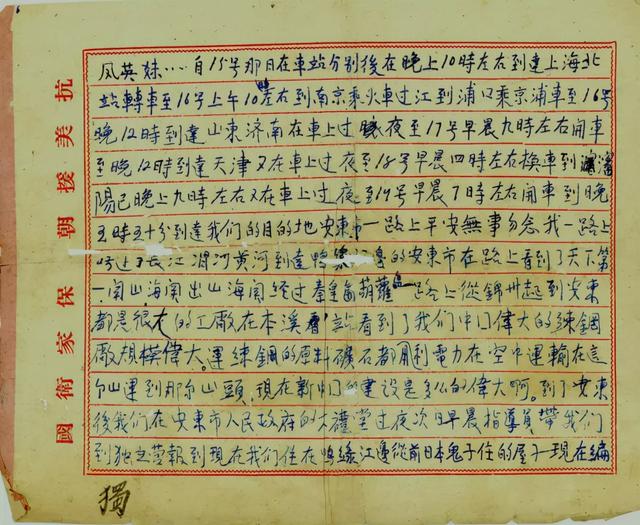 凤英妹⋯自15号那日在車站分別後在晚上10時左右到達上海北
站轉車至16号上午10時左右到南京乘火車过江到浦口乘京浦車至16号
晚12時到達山東济南在車上过夜至17号早晨九時左右開車
至晚12時到達天津又在車上过夜至18号早晨四時左右換車到瀋
陽已晚上九時左右又在車上过夜至19号早晨7時左右開車到晚
五時五十分到達我们的目的地安東市一路上平安無事勿念我一路上
长江 河黄河到達鸭 江边的安東市在路上看到了天下第
一関山海関出山海関经过秦皇島葫蘆島一路上從錦州起到安東
都是很大的工廠在本溪 站看到了我们中国偉大的練鋼
廠規模偉大。運練鋼的原料礦石都用到電力在空中運輸在這
个山運到那个山頭，現在新中国的建設是多么的偉大啊。到了安東
後我们在安東市人民政府的大禮堂过夜次日早晨指導員帶我们
到独立营報到現在我们住在鸭綠江邊從前日本鬼子住的屋子現在編
獨
抗美援朝保家衛國